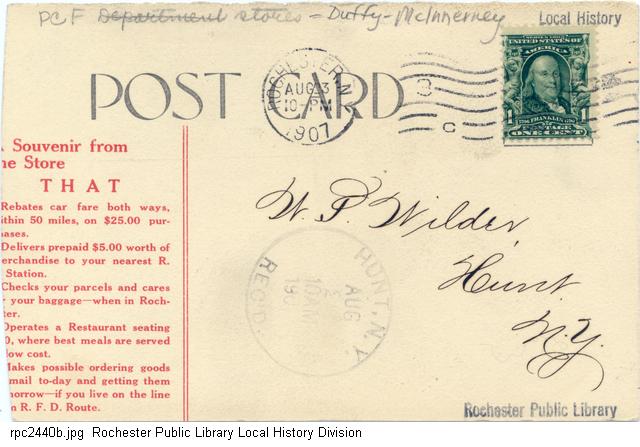 PCF Department stores = Duffy-McInnerney
Local History
POST CARD
ROCHESTER, N.
AUG 3
10-PM
1907
3
C
SERIES 1902
UNITED STATES OF
AMERICA
1 1706 FRANKLIN 1790 1
POSTAGE
ONE CENT
Souvenir from
he Store
THAT
Rebates car fare both ways,
ithin 50 miles, on $25.00 pur-
ases.
Delivers prepaid $5.00 worth of
erchandise to your nearest R.
Station.
Checks your parcels and cares
your baggage—when in Roch-
ter.
Operates a Restaurant seating
0, where best meals are served
low cost.
Makes possible ordering goods
mail to-day and getting them
morrow—if you live on the line
n R. F. D. Route.
W. P. Wilder,
Hunt,
N.Y.
HUNT, N.Y.
AUG
10 AM
190
REC'D.
Rochester Public Library
rpc2440b.jpg Rochester Public Library Local History Division